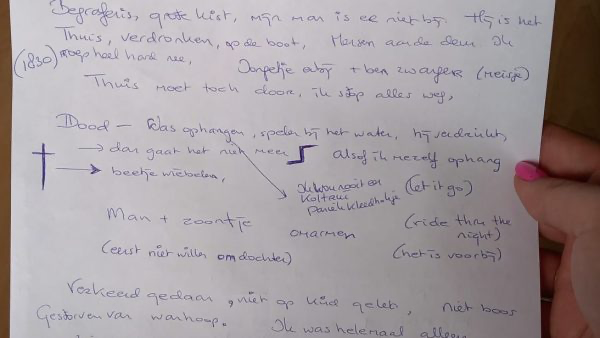 Begrafenis, grote kist, mijn man is er niet bij. Hij is het
Thuis, verdronken, op de boot, Mensen aan de deur. Ik
(1830) roep heel hard nee, Jongetje erbij + ben zwanger (meisje)
Thuis moet toch door, ik stop alles weg,
Dood — Was ophangen, spelen bij het water, hij verdrinkt,
→ dan gaat het niet meer alsof ik mezelf ophang
→ beetje wiebelen, Ik wou nooit een (let it go)
Koltrui
paniek kleedhokje
Man + zoontje omarmen (ride thru the
night)
(eerst niet willen om dochter) (het is voorbij)
Verkeerd gedaan, niet op kind gelet, niet boos
Gestorven van wanhoop. Ik was helemaal alleen